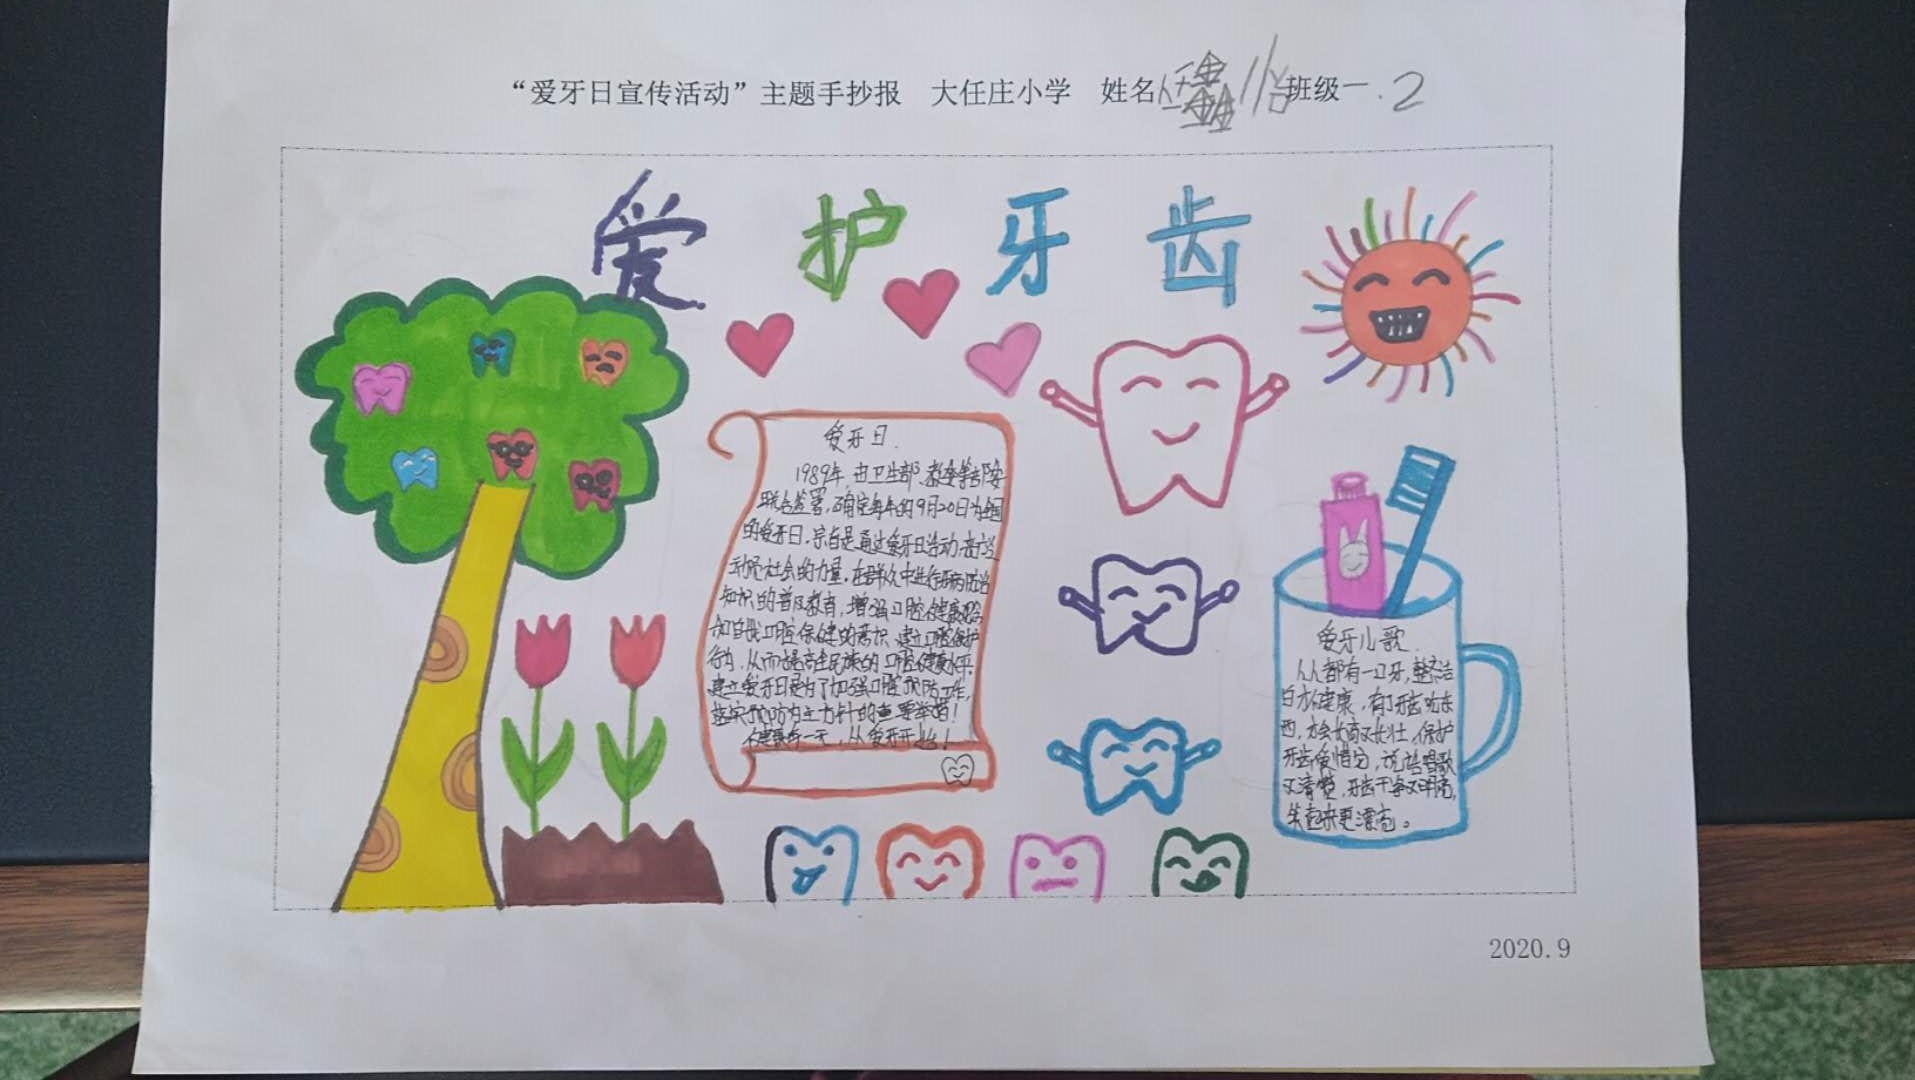 “爱牙日宣传活动”主题手抄报 大任庄小学 姓名任鑫 班级一.2
爱护牙齿
爱牙日.
1989年,由卫生部、教委等部委
联合签署,确定每年的9月20日为全国
的爱牙日.宗旨是通过爱牙日活动,广泛
动员社会的力量.在群众中进行牙病防治
知识的普及教育,增强口腔健康观念
和自我口腔保健的意识,建立口腔保护
行为,从而提高全民族的口腔健康水平.
建立爱牙日是为了加强口腔预防工作,
落实预防为主方针的重要举措!
健康每一天,从爱牙开始!
爱牙儿歌.
人人都有一口牙,整齐洁
白才健康,有了牙齿吃东
西,才会长高又长壮,保护
牙齿爱惜它,说话唱歌
又清楚,牙齿干净又明亮,
笑起来更漂亮。
2020.9